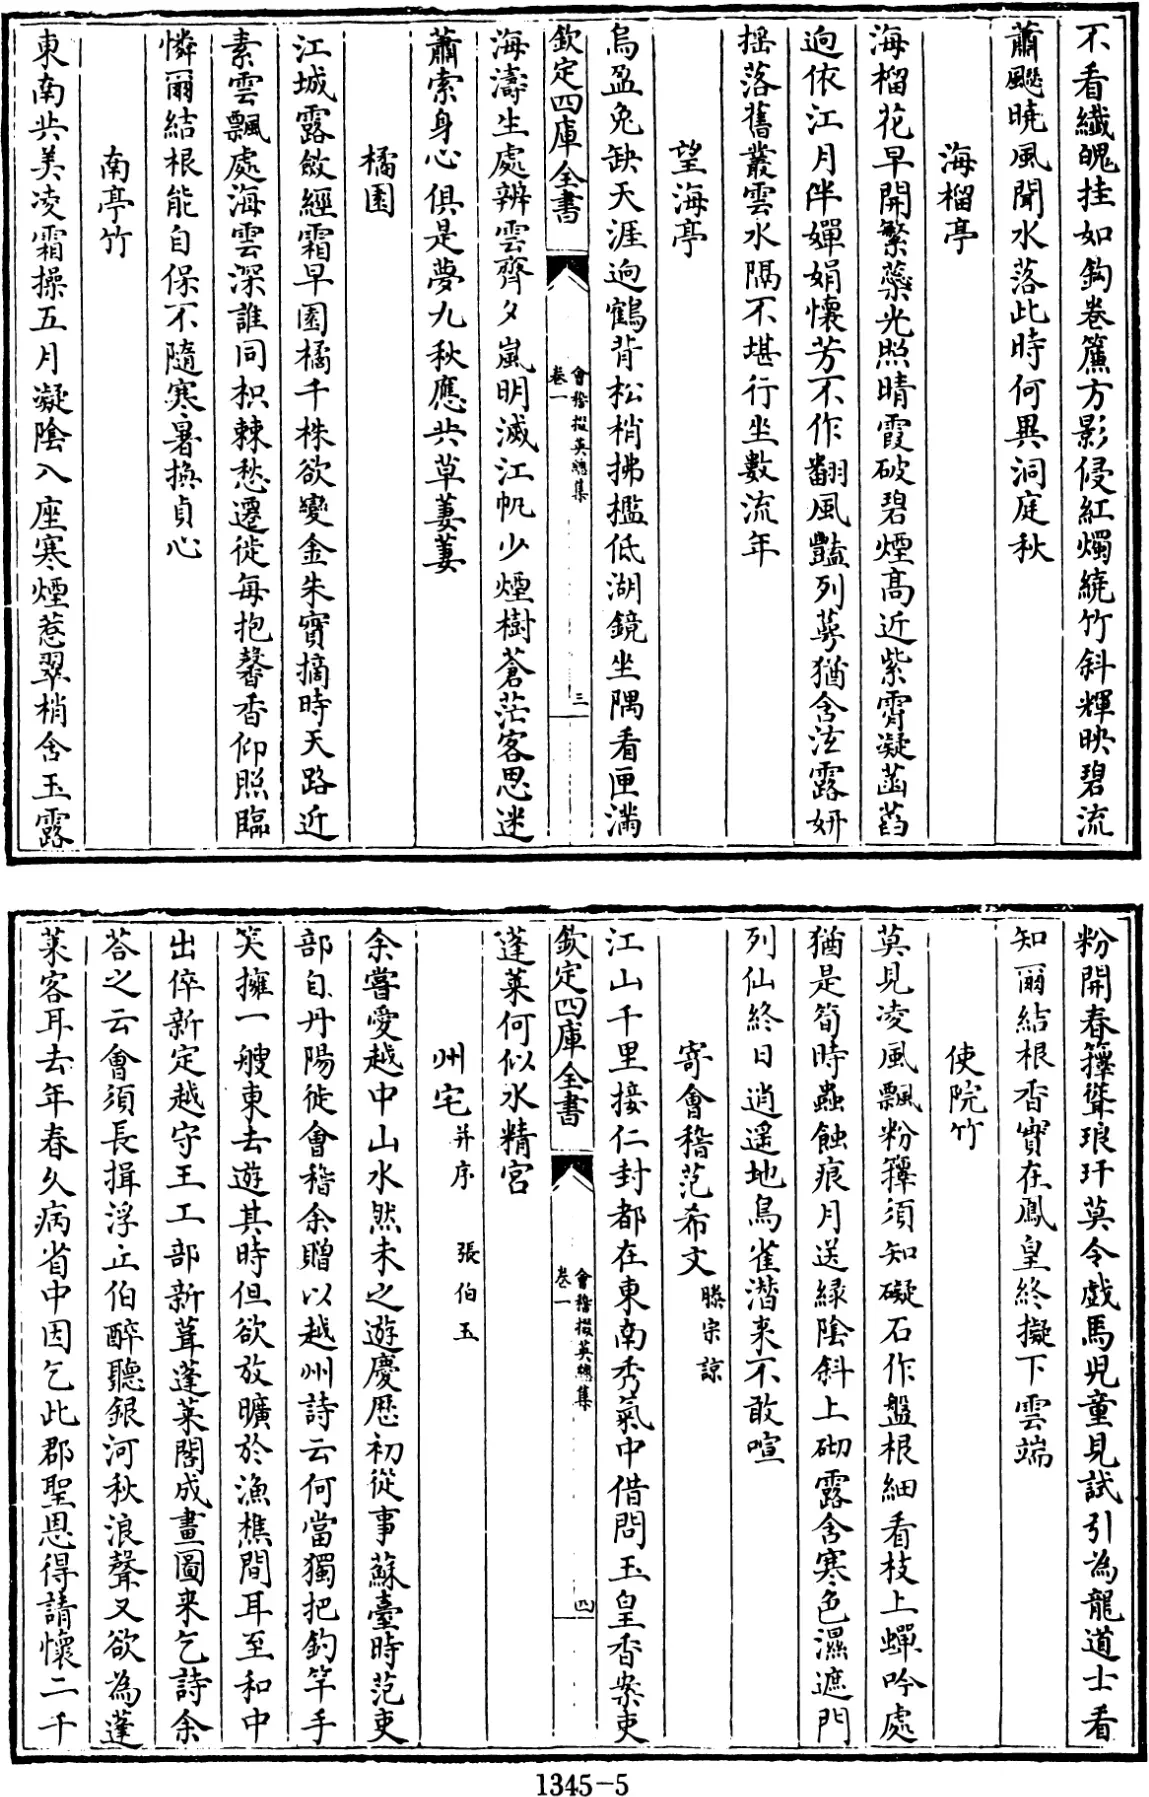 不看纖魄挂如鈎卷簾方影侵紅燭繞竹斜輝映碧流
蕭颸曉風聞水落此時何異洞庭秋
海榴亭
海榴花早開繁蘂光照晴霞破碧煙高近紫霄凝菡萏
逈依江月伴嬋娟懷芳不作翻風豔列萼猶含泫露妍
摇落舊叢雲水隔不堪行坐數流年
望海亭
烏盈兔缺天涯逈鶴背松梢拂檻低湖鏡坐隅看匣滿
欽定四庫全書
會稽掇英總集
卷一
三
海濤生處辨雲齊夕嵐明滅江帆少煙樹蒼茫客思迷
蕭索身心俱是夢九秋應共草萋萋
橘園
江城露斂經霜早園橘千株欲變金朱實摘時天路近
素雲飄處海雲深誰同枳棘愁遷徙每抱馨香仰照臨
憐爾結根能自保不隨寒暑換貞心
南亭竹
東南共美凌霜操五月凝陰入座寒煙惹翠梢含玉露
粉開春籜聳琅玕莫令戲馬兒童見試引為龍道士看
知爾結根香實在鳳皇終擬下雲端
使院竹
莫見凌風飄粉籜須知礙石作盤根細看枝上蟬吟處
猶是筍時蟲蝕痕月送緑陰斜上砌露含寒色濕遮門
列仙終日逍遥地鳥雀潛來不敢喧
寄會稽范希文 滕宗諒
江山千里接仁封都在東南秀氣中借問玉皇香案吏
欽定四庫全書
會稽掇英總集
卷一
四
蓬萊何似水精宫
州宅并序 張伯玉
余嘗愛越中山水然未之遊慶厯初從事蘇臺時范吏
部自丹陽徙會稽余贈以越州詩云何當獨把釣竿手
笑擁一艘東去遊其時但欲放曠於漁樵間耳至和中
出倅新定越守王工部新葺蓬萊閣成畫圖來乞詩余
荅之云會須長揖浮丘伯醉聽銀河秋浪聲又欲為蓬
萊客耳去年春久病省中因乞此郡聖恩得請懷二千
1345-5